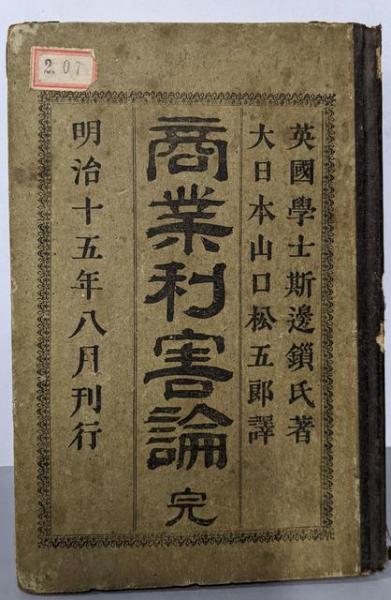 207
英國學士斯邊鎖氏著
大日本山口松五郎譯
商業利害論 完
明治十五年八月刊行